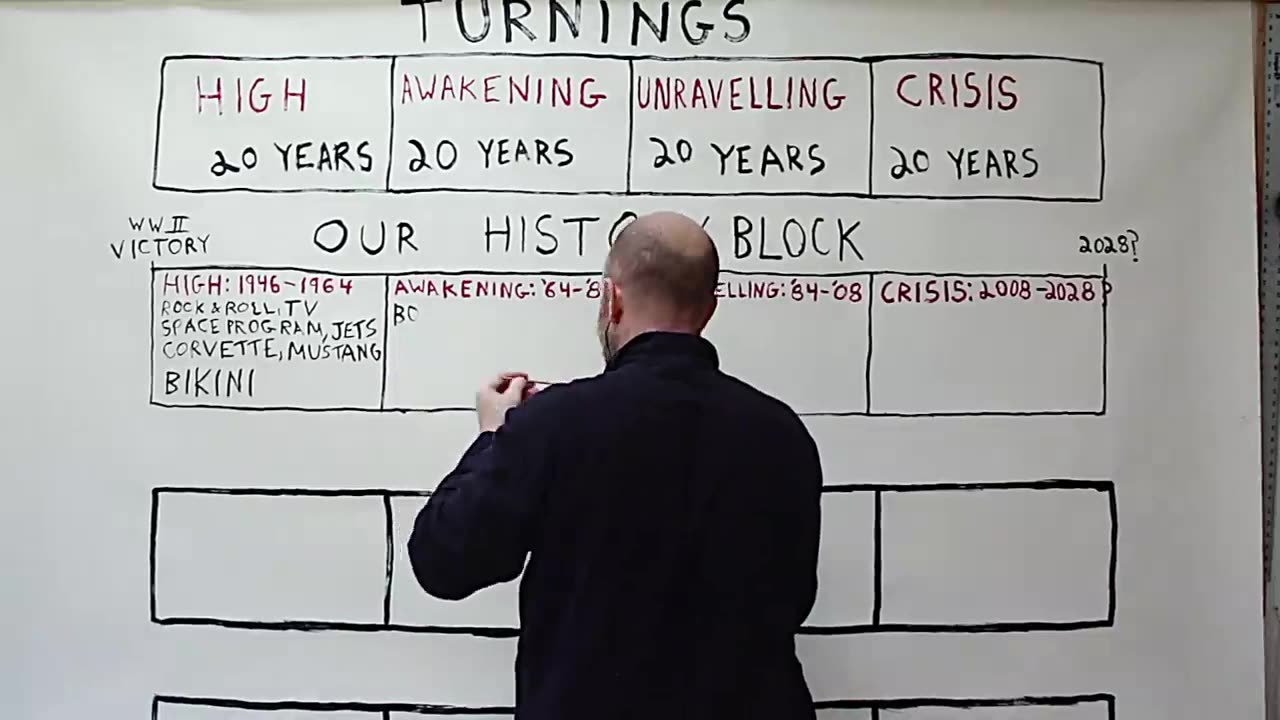 TURNINGS
HIGH
20 YEARS
AWAKENING
20 YEARS
UNRAVELLING
20 YEARS
CRISIS
20 YEARS
WWII
VICTORY
OUR BLOCK
2028?
HIGH: 1946-1964
ROCK & ROLL, TV
SPACE PROGRAM, JETS
CORVETTE, MUSTANG
BIKINI
AWAKENING: '64-'8
BO
ELLING: '84-'08
CRISIS: 2008-2028?